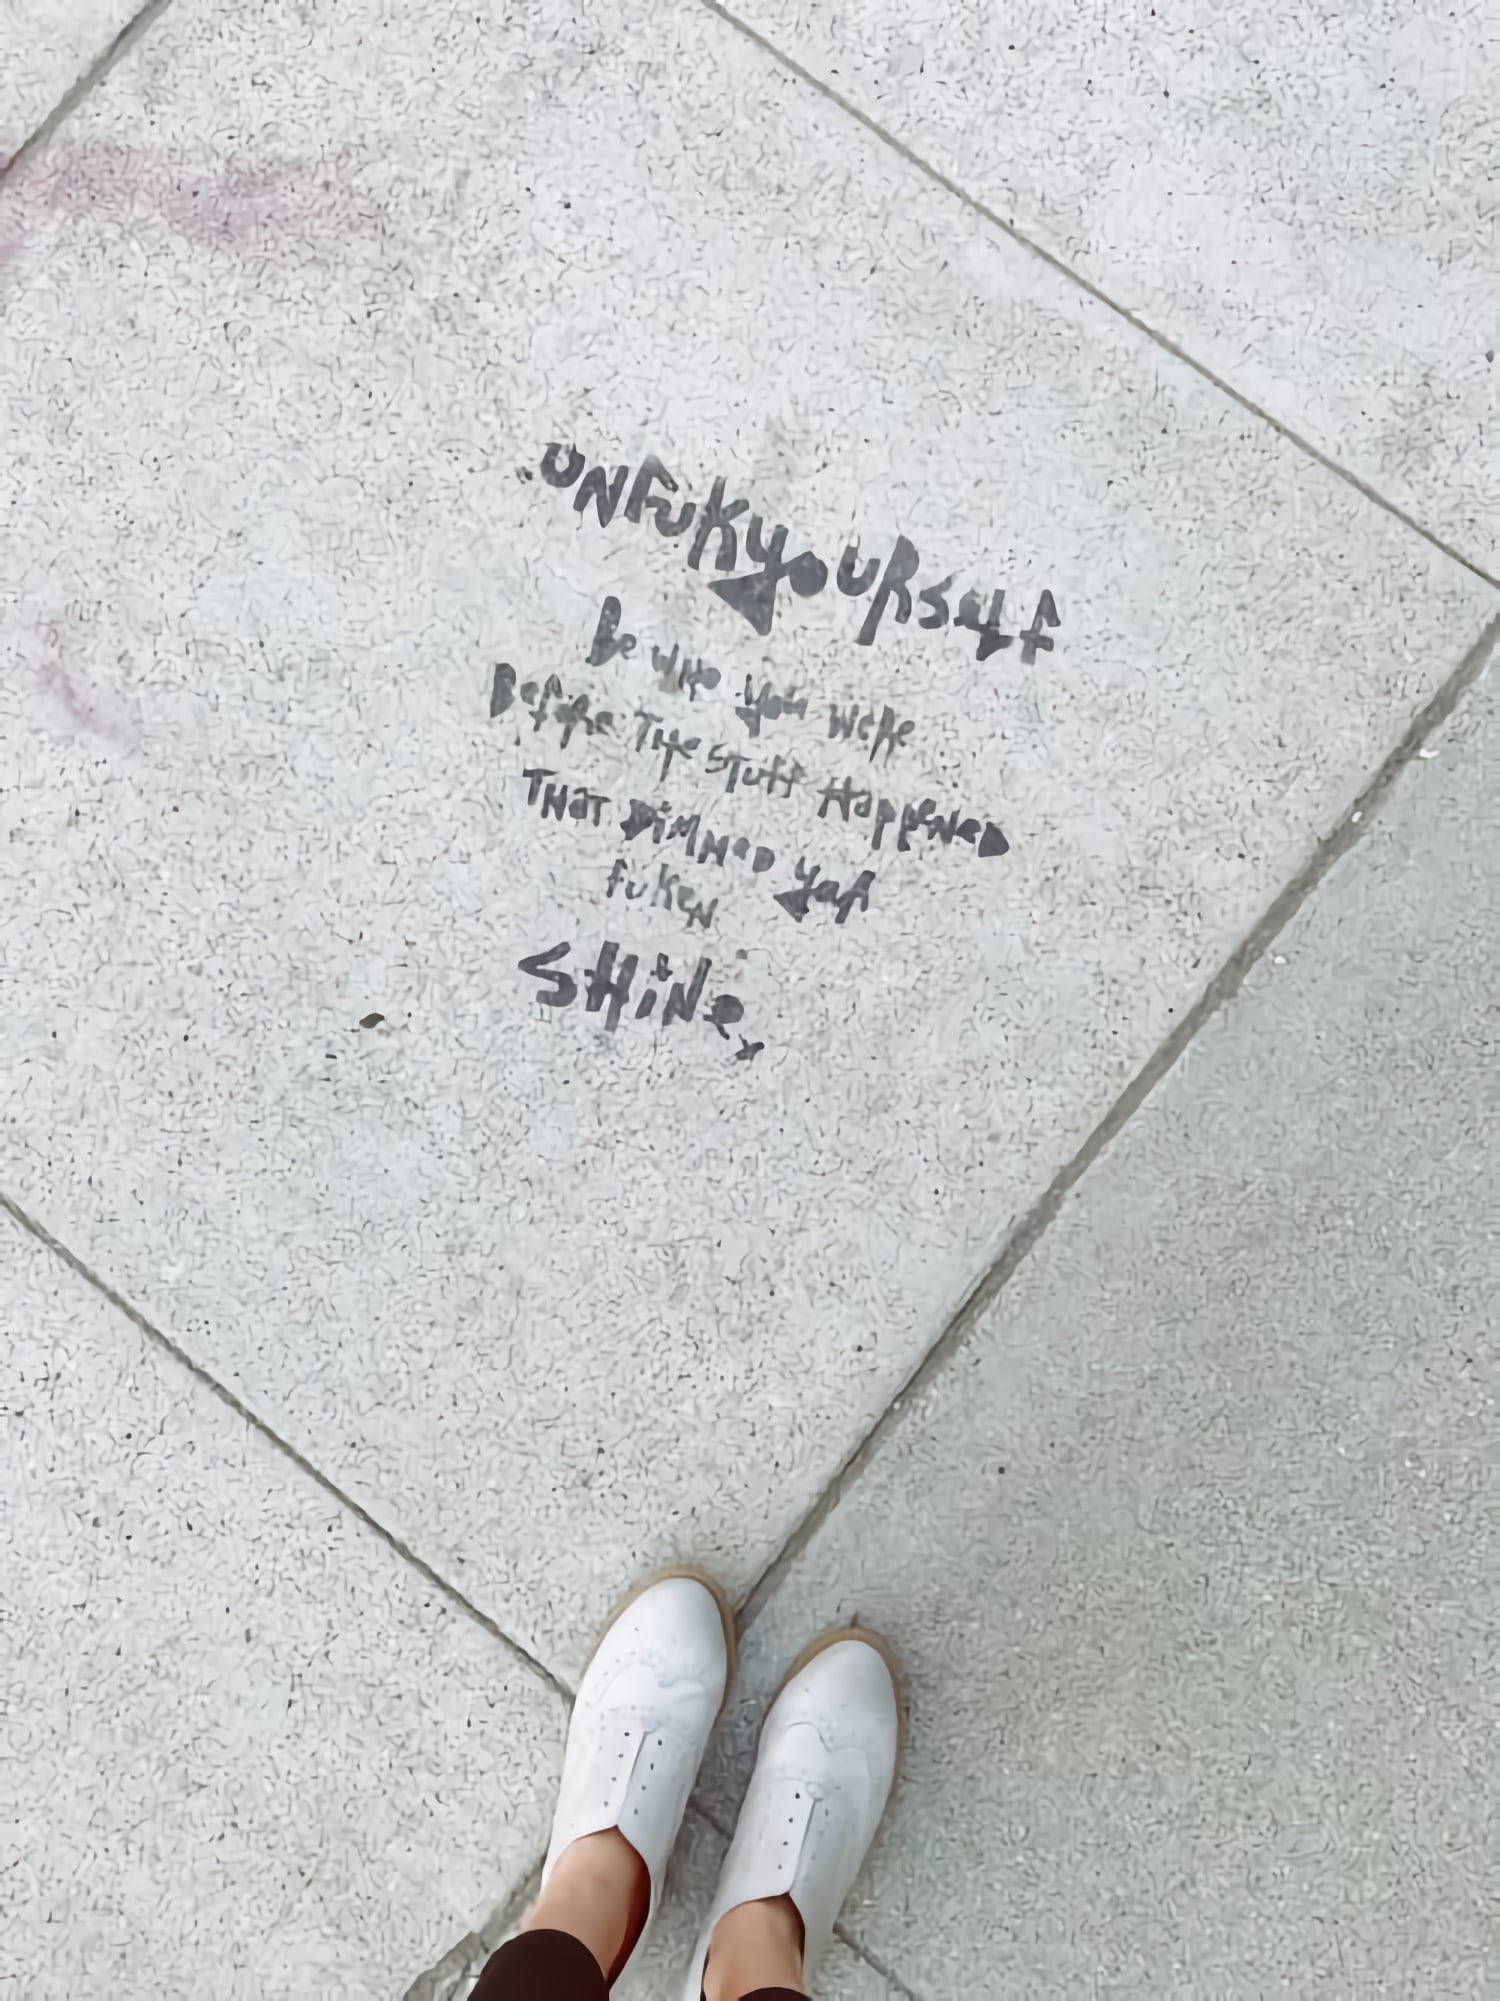 UNFUKyoURself
Be WHo you WeRe
BefoRe THe STuff HappeNeD
THaT DiMMeD yaR
fuKeN
SHiNe x